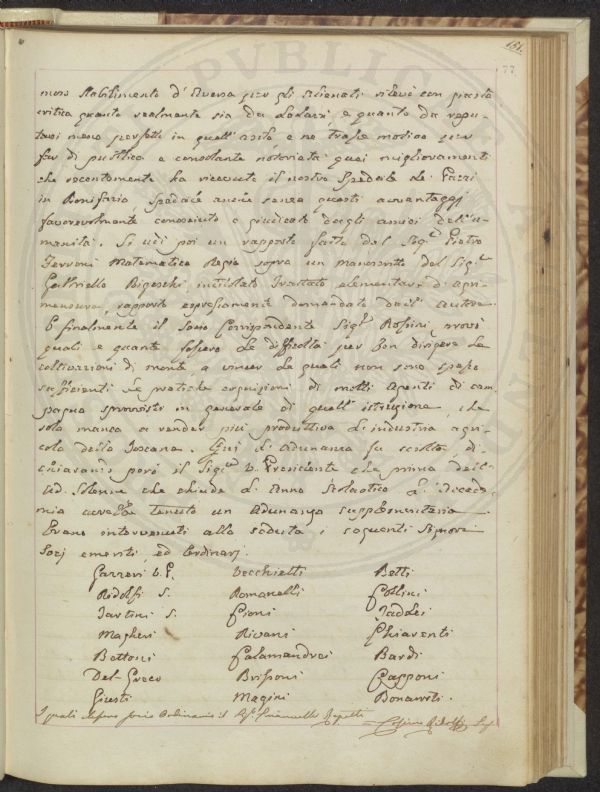 151.
77
meno Stabilimento d'Aversa per gli Alienati rilevò con giusta
critica quanto realmente sia da lodarsi, e quanto da repu-
tarsi meno perfetto in quell'asilo, e ne trasse motivo per
far di pubblica e consolante notorietà quei miglioramenti
che recentemente ha ricevuto il nostro Spedale de' Pazzi
in Bonifazio, Spedale anche senza questi avvantaggj
favorevolmente conosciuto e giudicato dagli amici dell'u-
manità. Si udì poi un rapporto fatto dal Sigr. Pietro
Ferroni Matematico Regio sopra un manoscritto del Sigr.
Gabriello Bigeschi, intitolato Trattato elementare di agri-
mensura, rapporto espressamente domandato dall'autore.
E finalmente il Socio Corrispondente Sigr. Rossini provò
quali e quante fossero le difficoltà per ben dirigere le
coltivazioni di monte, a vincer le quali non sono spesso
sufficienti le pratiche cognizioni di molti Agenti di cam-
pagna sprovvisti in generale di quell'istruzione, che
sola manca a render più produttiva l'industria agri-
cola della Toscana. Qui l'Adunanza fu sciolta, di-
chiarando però il Sigr. V. Presidente che prima dell'
Ad. Solenne che chiude l'Anno Scolastico l'Accade-
mia avrebbe tenuto un Adunanza supplementaria.
Erano intervenuti alla seduta i seguenti Signori
Socj emeriti, ed Ordinarj.
Gazzeri V. P. Vecchietti Betti
Ridolfi S. Romanelli Collini
Tartini S. Cioni Taddei
Magheri Rivani Chiarenti
Bettoni Calamandrei Bardi
Del-Greco Brissoni Capponi
Giusti Magini Bonavoti.
I quali elessero socio Ordinario il Sigr. Emanuelle Repetti = Cosimo Ridolfi Seg.
PVBLICA